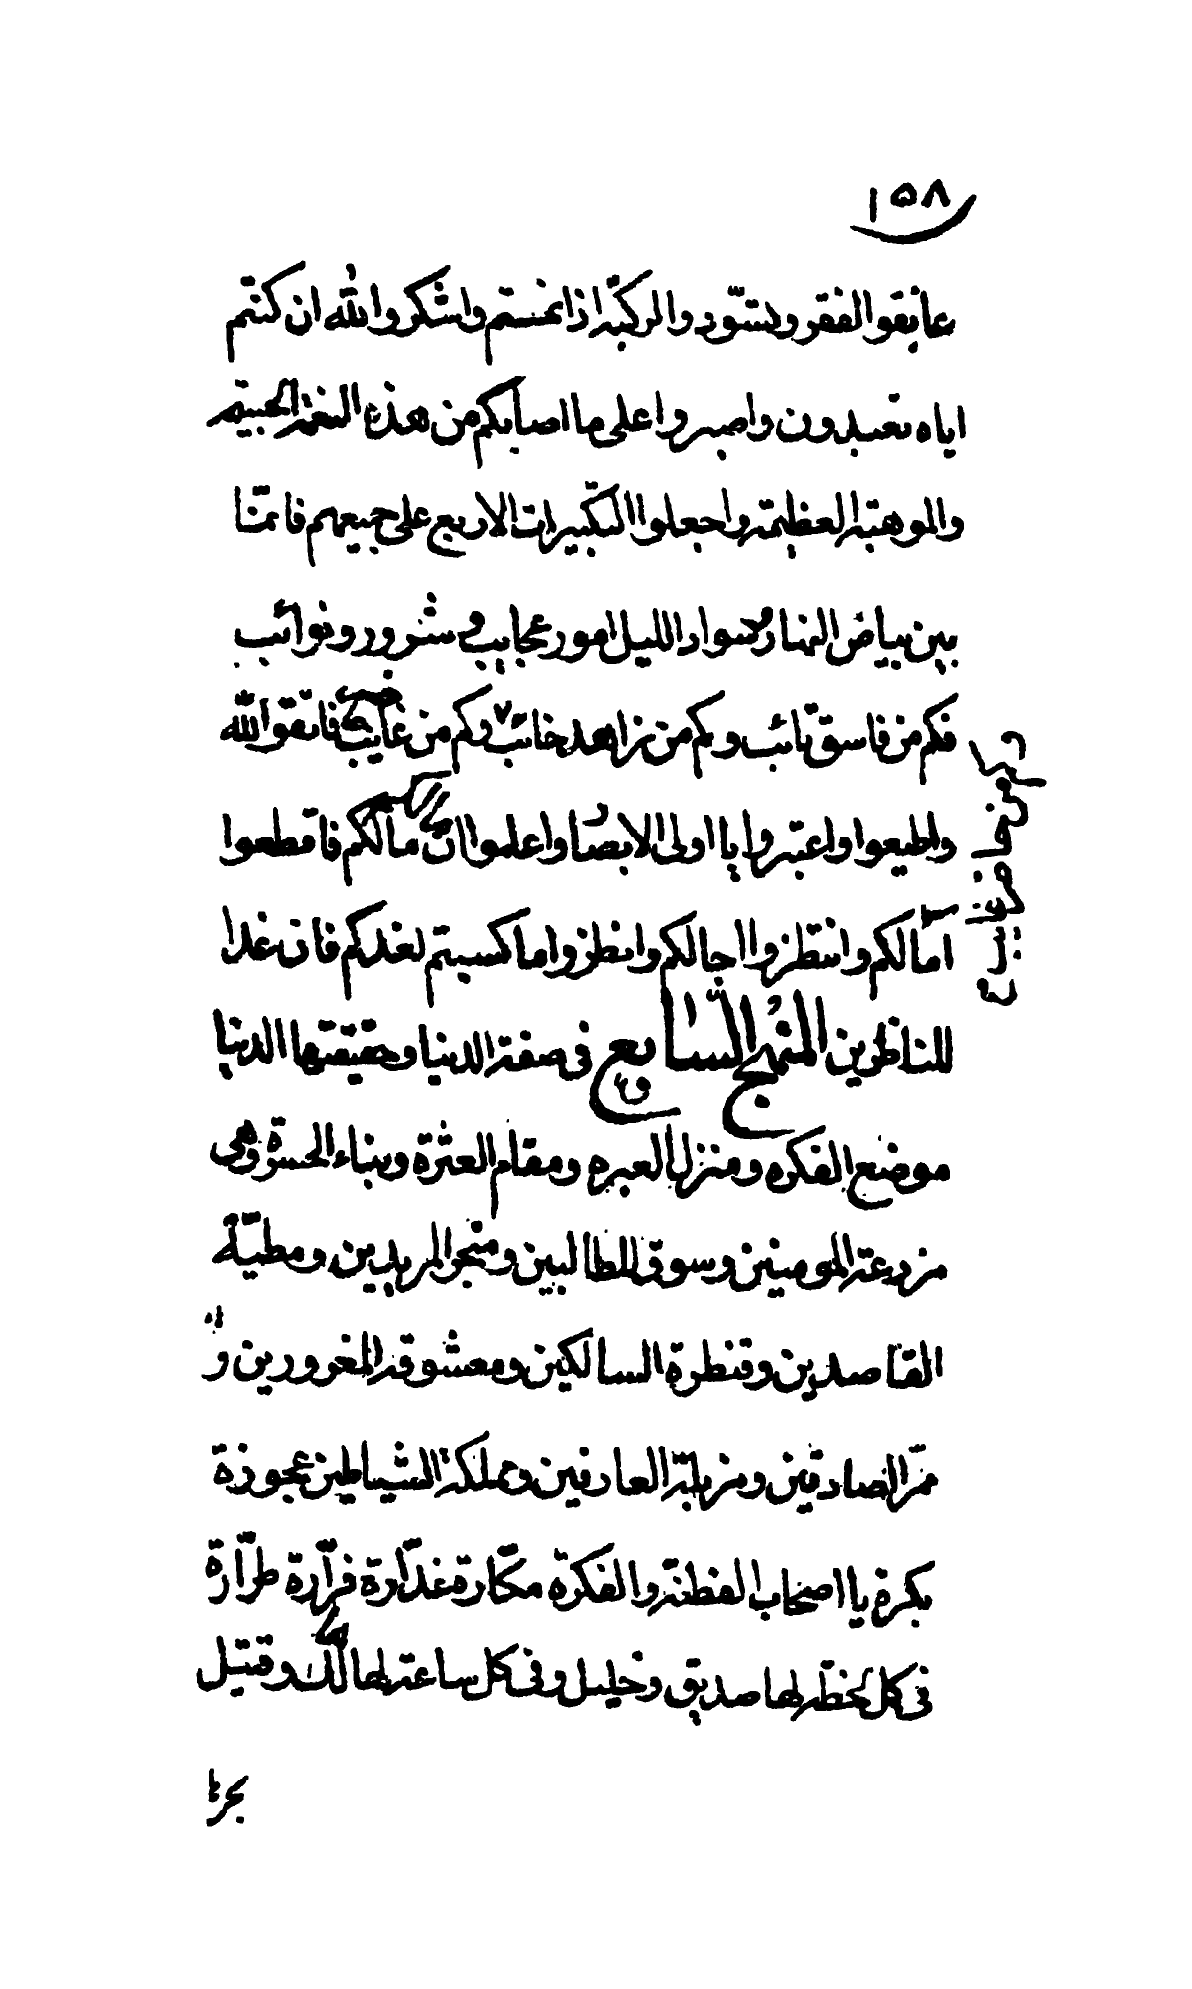 ١٥٨
عانقوا الفقر وتسّود والركبة اذا نمستم واشكروا الله ان كنتم
اياه تعبدون واصبروا على ما اصابكم من هذه النعمة الجبية
والموهبة العظيمة واجعلوا التكبيرات الاربع على جميعهم فانمّا
بين بياض النهار وسواد الليل امور عجايب فى شرور ونوائب
فكم من فاسق تائب وكم من زاهد خائب وكم من غايب فاتقوا الله
واطيعوا واعتبروا يا اولى الابصار واعلموا ان مالكم فاقطعوا
امالكم وانتظروا اجالكم وانظروا ما كسبتم لغدكم فان غدا
للناظرين المنهج السابع فى صفة الدنيا وحقيقتها الدنيا
موضع الفكره ومنزل العبره ومقام العثرة وبناء الحسرة وهى
مزرعة المومنين وسوق الطالبين ومتجر المريدين ومطيّة
القاصدين وقنطرة السالكين ومعشوقة المغرورين و
ممّر الصادقين ومزبلة العارفين ومملكة الشياطين عجوزة
بكرة يا اصحاب الفطنة والفكرة مكّارة غدّارة فرّارة طرّارة
فى كل لحظة لها صديق وخليل وفى كل ساعة لها هالك وقتيل